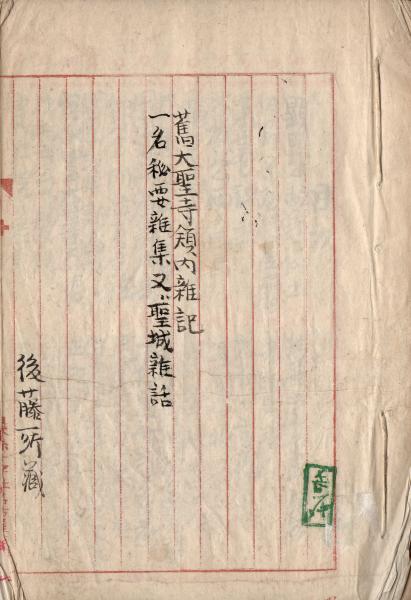 舊大聖寺領内雜記
一名秘要雜集又聖城雜話
後藤一所藏